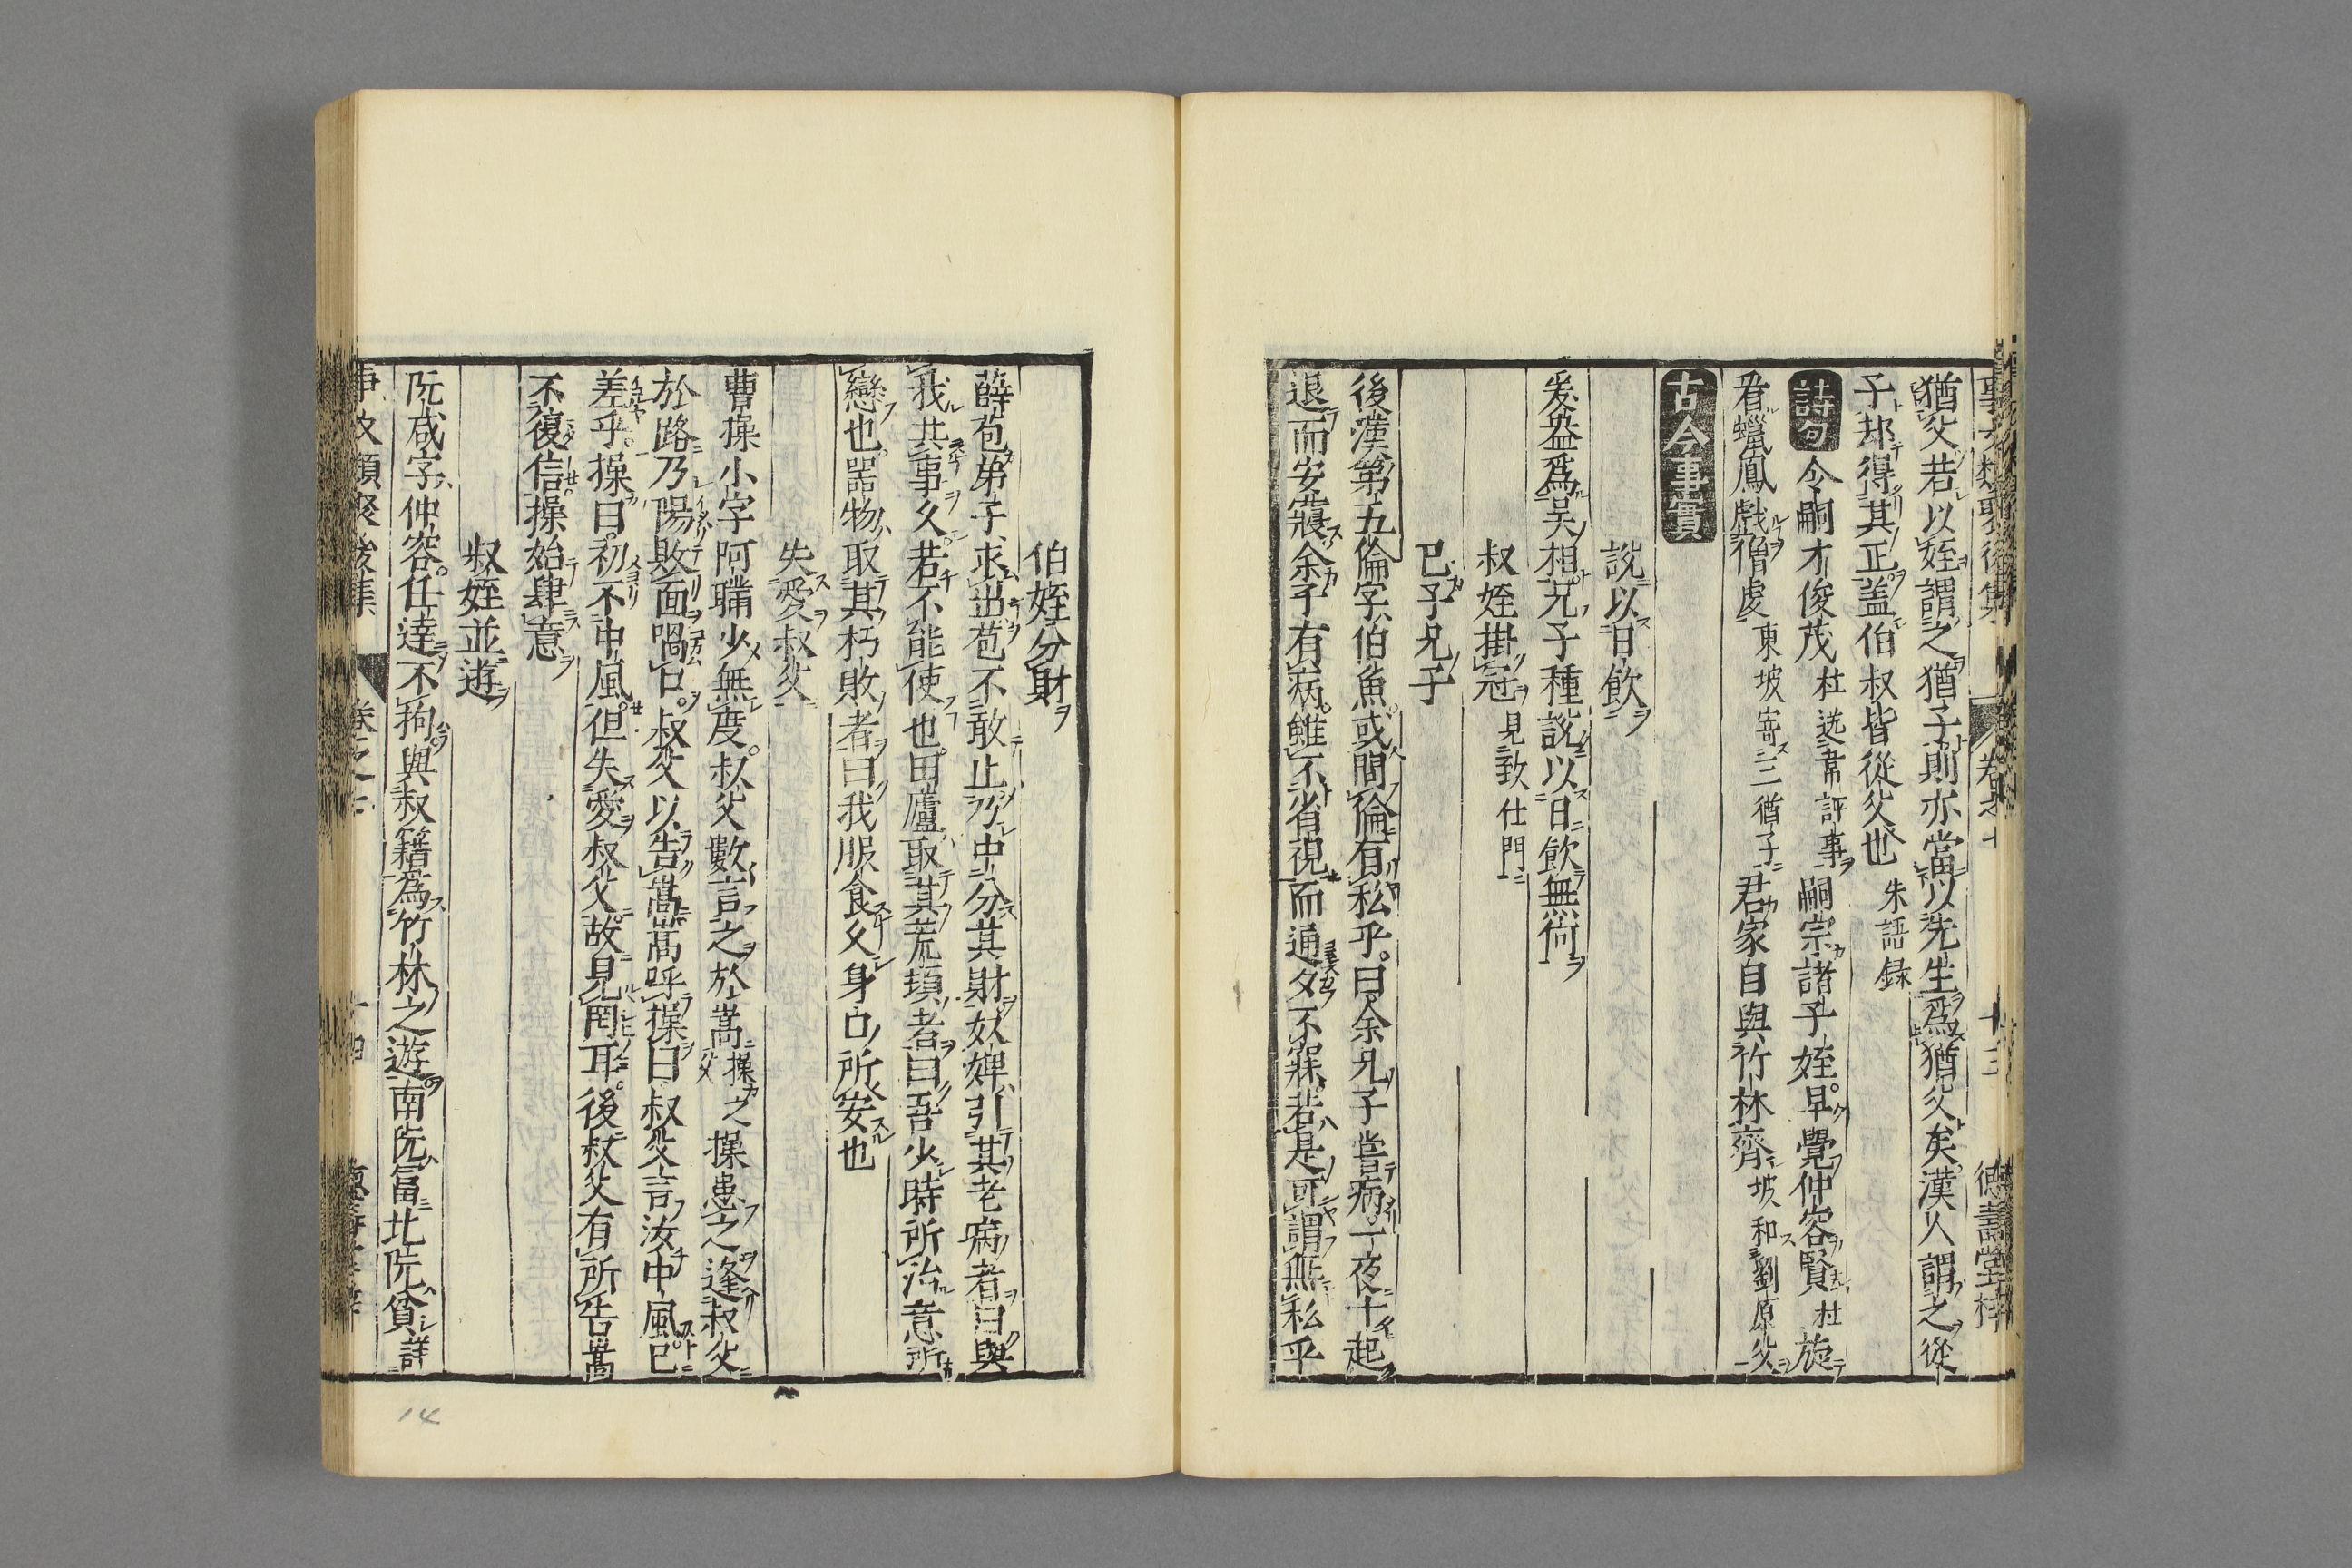 猶父若以姪謂之猶子則亦當以先生爲猶父矣漢人謂之從
子却得其正蓋伯叔皆從父也 朱語錄
詩句 令嗣才俊茂 杜送韋評事 嗣宗諸子姪早覺仲容賢 杜 旋
看蠟鳳戲僧虔 東坡寄三猶子 君家自與竹林齊 坡和劉原父
古今事實
説以日飲
爰盎爲吳相兄子種説以日飲無何
叔姪掛冠 見致仕門
已子兄子
後漢第五倫字伯魚或問倫有私乎曰余兄子嘗病一夜十起
退而安寢余子有病雖不省視而通夕不寐若是可謂無私乎
伯姪分財
薛苞弟子求出苞不敢止乃中分其財奴婢引其老病者曰與
我共事久若不能使也田廬取其荒頓者曰吾少時所治意所
戀也器物取其朽敗者曰我服食久身口所安也
失愛叔父
曹操小字阿瞞少無度叔父數言之於嵩 操之父 操患之逢叔父
於路乃陽敗面喎口叔父以告嵩嵩呼操曰叔父言汝中風已
差乎操曰初不中風但失愛叔父故見罔耳後叔父有所告嵩
不復信操始肆意
叔姪並遊
阮咸字仲容任達不拘與叔籍爲竹林之遊南阮富北阮貧 詳
14